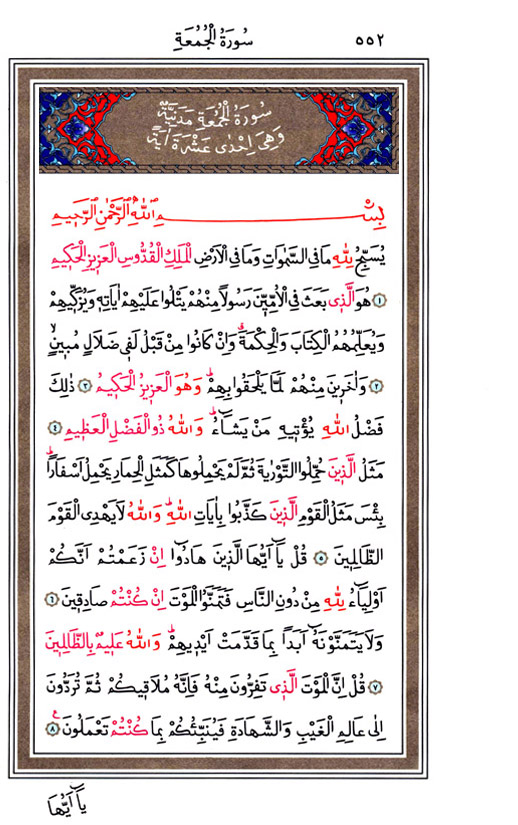 ٥٥٢ سُورَةُ الْجُمُعَةِ
سُورَةُ الْجُمُعَةِ مَدَنِيَّةٌ
وَهِيَ اِحْدٰى عَشْرَةَ اٰيَةً
بِسْمِ اللّٰهِ الرَّحْمٰنِ الرَّحِيمِ
يُسَبِّحُ لِلّٰهِ مَا فِي السَّمٰوَاتِ وَمَا فِي الْاَرْضِ الْمَلِكِ الْقُدُّوسِ الْعَزِيزِ الْحَكِيمِ
﴿١﴾ هُوَ الَّذِي بَعَثَ فِي الْاُمِّيّ۪نَ رَسُولًا مِنْهُمْ يَتْلُوا عَلَيْهِمْ اٰيَاتِهِ وَيُزَكِّيهِمْ
وَيُعَلِّمُهُمُ الْكِتَابَ وَالْحِكْمَةَۗ وَاِنْ كَانُوا مِنْ قَبْلُ لَفِي ضَلَالٍ مُبِينٍۙ
﴿٢﴾ وَاٰخَرِينَ مِنْهُمْ لَمَّا يَلْحَقُوا بِهِمْۜ وَهُوَ الْعَزِيزُ الْحَكِيمُ ﴿٣﴾ ذٰلِكَ
فَضْلُ اللّٰهِ يُؤْتِيهِ مَنْ يَشَٓاءُۜ وَاللّٰهُ ذُو الْفَضْلِ الْعَظِيمِ ﴿٤﴾
مَثَلُ الَّذِينَ حُمِّلُوا التَّوْرٰيةَ ثُمَّ لَمْ يَحْمِلُوهَا كَمَثَلِ الْحِمَارِ يَحْمِلُ اَسْفَارًاۜ
بِئْسَ مَثَلُ الْقَوْمِ الَّذِينَ كَذَّبُوا بِاٰيَاتِ اللّٰهِۜ وَاللّٰهُ لَا يَهْدِي الْقَوْمَ
الظَّالِمِينَ ﴿٥﴾ قُلْ يَٓا اَيُّهَا الَّذِينَ هَادُٓوا اِنْ زَعَمْتُمْ اَنَّكُمْ
اَوْلِيَٓاءُ لِلّٰهِ مِنْ دُونِ النَّاسِ فَتَمَنَّوُا الْمَوْتَ اِنْ كُنْتُمْ صَادِقِينَ ﴿٦﴾
وَلَا يَتَمَنَّوْنَهُٓ اَبَدًا بِمَا قَدَّمَتْ اَيْدِيهِمْۜ وَاللّٰهُ عَلِيمٌ بِالظَّالِمِينَ
﴿٧﴾ قُلْ اِنَّ الْمَوْتَ الَّذِي تَفِرُّونَ مِنْهُ فَاِنَّهُ مُلَاقِيكُمْ ثُمَّ تُرَدُّونَ
اِلٰى عَالِمِ الْغَيْبِ وَالشَّهَادَةِ فَيُنَبِّئُكُمْ بِمَا كُنْتُمْ تَعْمَلُونَ ﴿٨﴾ ع
يَٓا اَيُّهَا